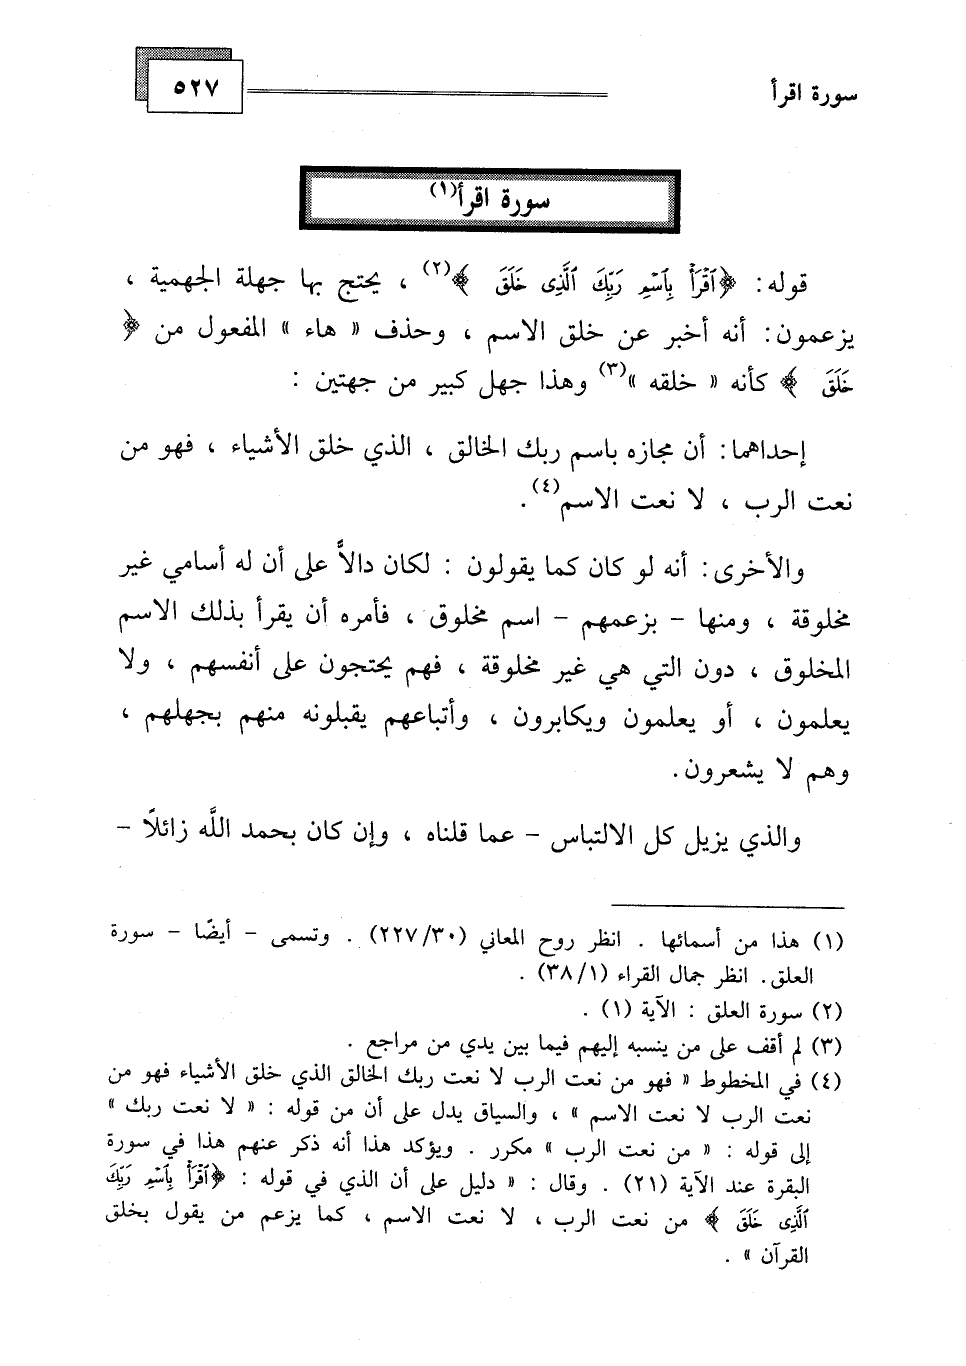 سورة اقرأ
٥٢٧
سورة اقرأ(١)
قوله: ﴿ٱقْرَأْ بِٱسْمِ رَبِّكَ ٱلَّذِى خَلَقَ ﴾(٢) ، يحتج بها جهلة الجهمية ،
يزعمون: أنه أخبر عن خلق الاسم ، وحذف « هاء » المفعول من ﴿
خَلَقَ ﴾ كأنه « خلقه »(٣) وهذا جهل كبير من جهتين :
إحداهما: أن مجازه باسم ربك الخالق ، الذي خلق الأشياء ، فهو من
نعت الرب ، لا نعت الاسم(٤).
والأخرى: أنه لو كان كما يقولون : لكان دالاًّ على أن له أسامي غير
مخلوقة ، ومنها - بزعمهم - اسم مخلوق ، فأمره أن يقرأ بذلك الاسم
المخلوق ، دون التي هي غير مخلوقة ، فهم يحتجون على أنفسهم ، ولا
يعلمون ، أو يعلمون ويكابرون ، وأتباعهم يقبلونه منهم بجهلهم ،
وهم لا يشعرون.
والذي يزيل كل الالتباس - عما قلناه ، وإن كان بحمد اللَّه زائلاً -
(١) هذا من أسمائها . انظر روح المعاني (٢٢٧/٣٠) . وتسمى - أيضًا - سورة
العلق. انظر جمال القراء (٣٨/١) .
(٢) سورة العلق : الآية (١) .
(٣) لم أقف على من ينسبه إليهم فيما بين يدي من مراجع .
(٤) في المخطوط « فهو من نعت الرب لا نعت ربك الخالق الذي خلق الأشياء فهو من
نعت الرب لا نعت الاسم » ، والسياق يدل على أن من قوله : « لا نعت ربك »
إلى قوله : « من نعت الرب » مكرر . ويؤكد هذا أنه ذكر عنهم هذا في سورة
البقرة عند الآية (٢١) . وقال : « دليل على أن الذي في قوله : ﴿ٱقْرَأْ بِٱسْمِ رَبِّكَ
ٱلَّذِى خَلَقَ ﴾ من نعت الرب ، لا نعت الاسم ، كما يزعم من يقول بخلق
القرآن » .